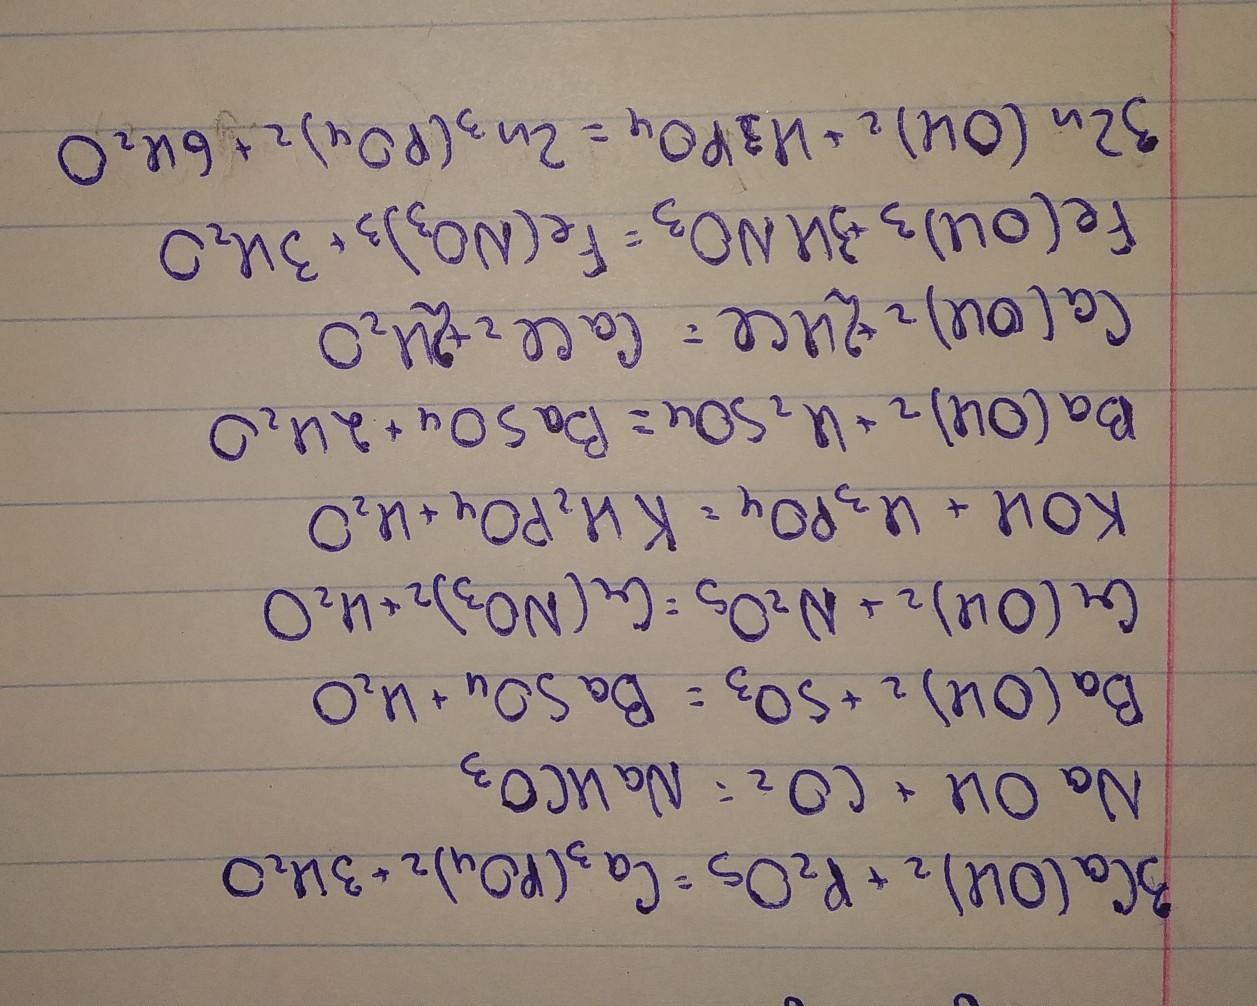 3Ca(OH)₂ + P₂O₅ = Ca₃(PO₄)₂ + 3H₂O
NaOH + CO₂ = NaHCO₃
Ba(OH)₂ + SO₃ = BaSO₄ + H₂O
Cu(OH)₂ + N₂O₅ = Cu(NO₃)₂ + H₂O
KOH + H₃PO₄ = KH₂PO₄ + H₂O
Ba(OH)₂ + H₂SO₄ = BaSO₄ + 2H₂O
Ca(OH)₂ + 2HCl = CaCl₂ + 2H₂O
Fe(OH)₃ + 3HNO₃ = Fe(NO₃)₃ + 3H₂O
3Zn(OH)₂ + H₃PO₄ = Zn₃(PO₄)₂ + 6H₂O